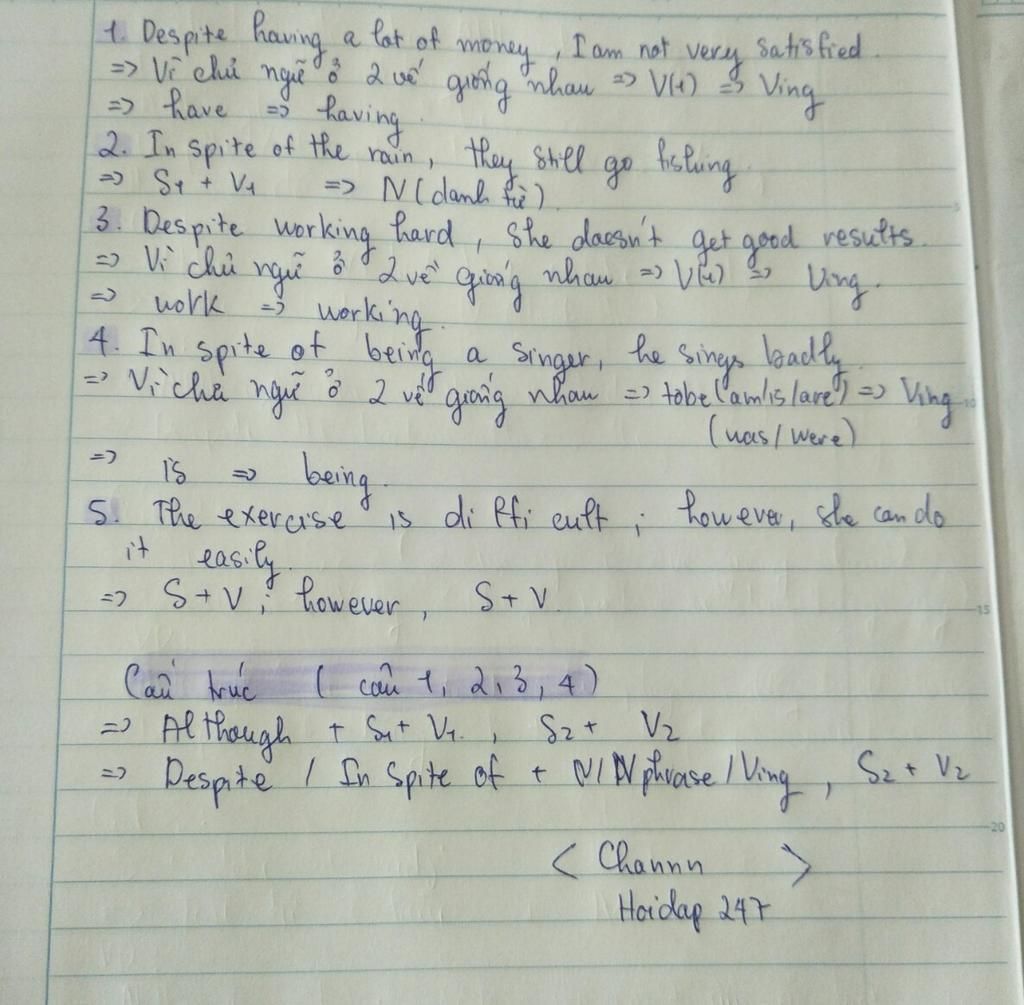 1. Despite having a lot of money, I am not very satisfied.
=> Vì chủ ngữ ở 2 vế giống nhau => V(1) => Ving
=> have => having.
2. In spite of the rain, they still go fishing.
=> S1 + V1 => N (danh từ).
3. Despite working hard, she doesn't get good results.
=> Vì chủ ngữ ở 2 vế giống nhau => V(1) => Ving.
=> work => working.
4. In spite of being a singer, he sings badly.
=> Vì chủ ngữ ở 2 vế giống nhau => tobe (am/is/are) => Ving
(was/were)
=> is => being.
5. The exercise is difficult; however, she can do
it easily.
=> S + V; however, S + V.
Cấu trúc ( câu 1, 2, 3, 4)
=> Although + S1 + V1, S2 + V2
=> Despite / In spite of + N/N phrase/Ving, S2 + V2
< Channn >
Hoidap 247
10
15
20